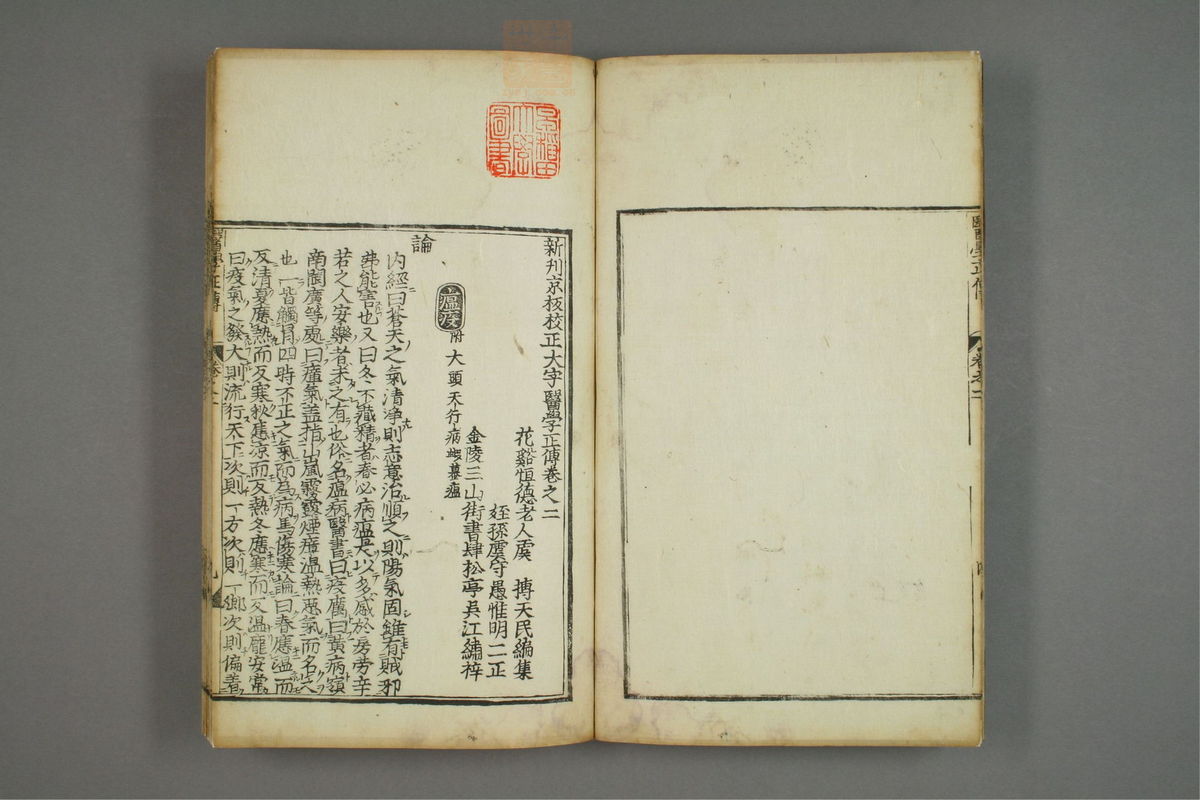 新刋京板校正大字醫學正傳卷之二
花谿恒德老人虞 摶天民編集
姪孫虞守愚惟明二正
金陵三山街書肆松亭吳江繡梓
瘟疫 附大頭天行病 蝦蟇瘟
論
內經曰蒼天之氣清浄則志意治順之則陽氣固雖有賊邪
弗能害也又曰冬不藏精者春必病瘟是以多感於房劳辛
若之人安樂者未之有也俗名瘟病醫書曰疫癘曰黃病嶺
南閩廣等處曰瘴氣盖指山嵐霧露煙瘴温熱惡氣而名之
也一皆觸冐四時不正之氣而為病焉傷寒論曰春應温而
反清夏應熱而反寒秋應凉而反熱冬應寒而反温龎安常
曰疫氣之發大則流行天下次則一方次則一鄉次則偏着
醫學正傳 卷之二 九
醫學正傳 卷之二
早稲田大學圖書